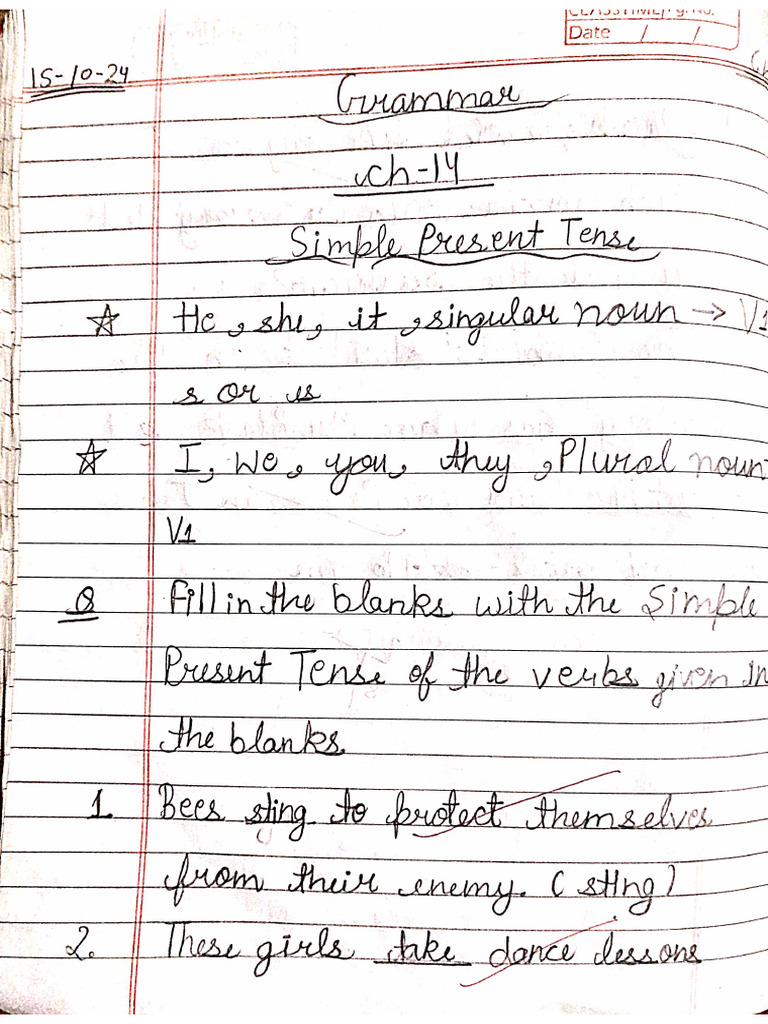 CLASSTIME/Pg. No.
Date / /
15-10-24
Grammar
ch-14
Simple Present Tense
☆ He, she, it, singular noun → V1
s or es
☆ I, We, you, they, Plural noun
V1
Q Fill in the blanks with the Simple
Present Tense of the verbs given in
the blanks.
1. Bees sting to protect themselves
from their enemy. (sting)
2. These girls take dance lessons